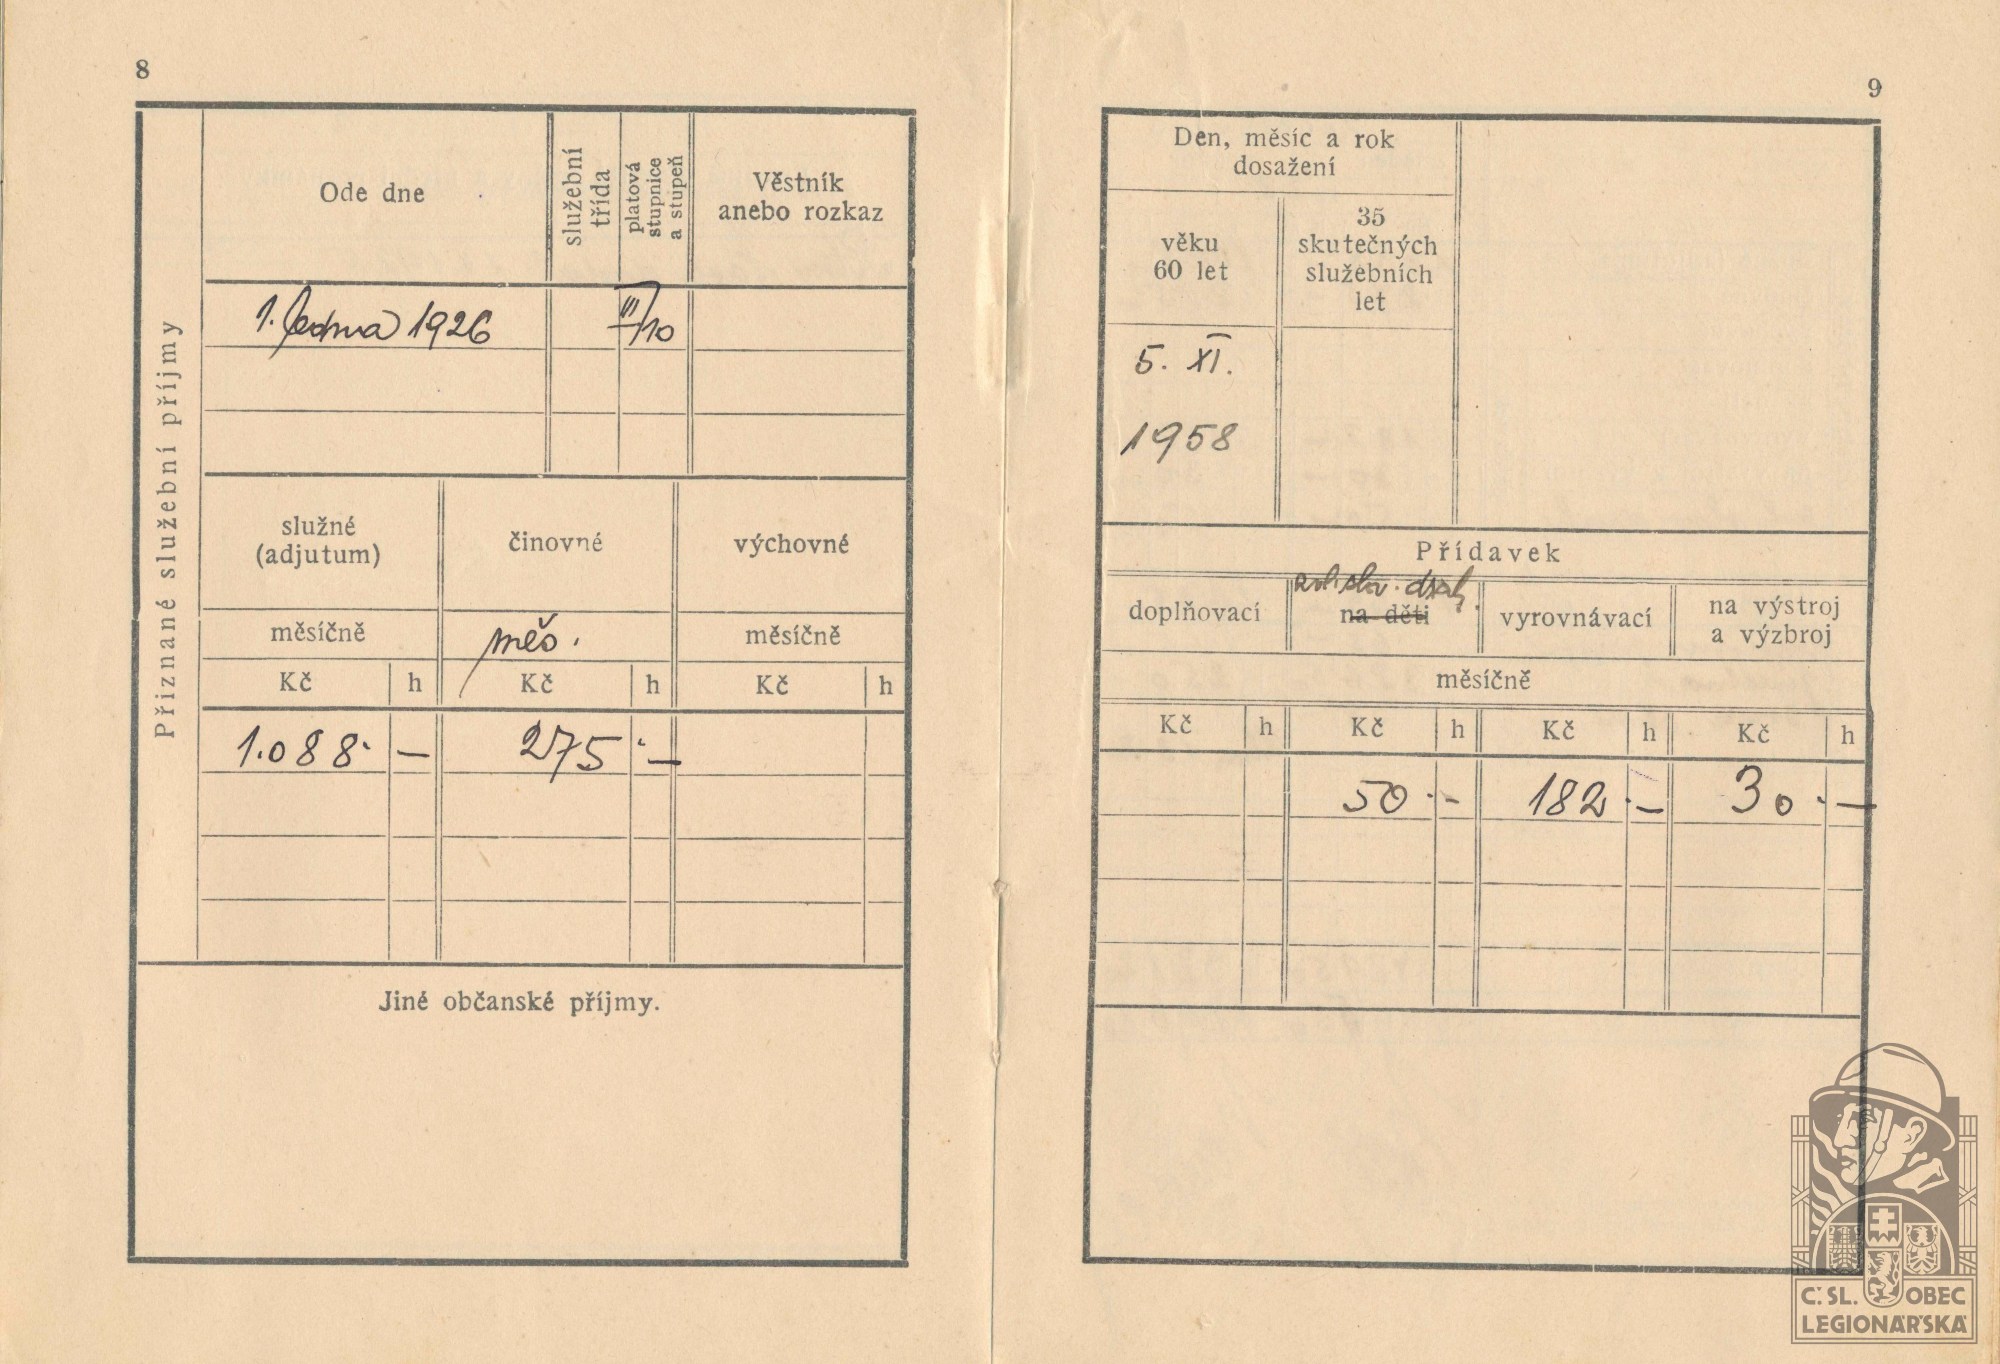 8
Přiznané služební příjmy
Ode dne
služební
třída
platová
stupnice
a stupeň
Věstník
anebo rozkaz
1. ledna 1926
III/10
služné
(adjutum)
činovné
výchovné
měsíčně
měs.
měsíčně
Kč h Kč h Kč h
1.088·—
275·—
Jiné občanské příjmy.
9
Den, měsíc a rok
dosažení
věku
60 let
35
skutečných
služebních
let
5. XI.
1958
Přídavek
doplňovací
na děti
vyrovnávací
na výstroj
a výzbroj
měsíčně
Kč h Kč h Kč h Kč h
50·— 182·— 30·—
Č. SL. OBEC
LEGIONÁŘSKÁ